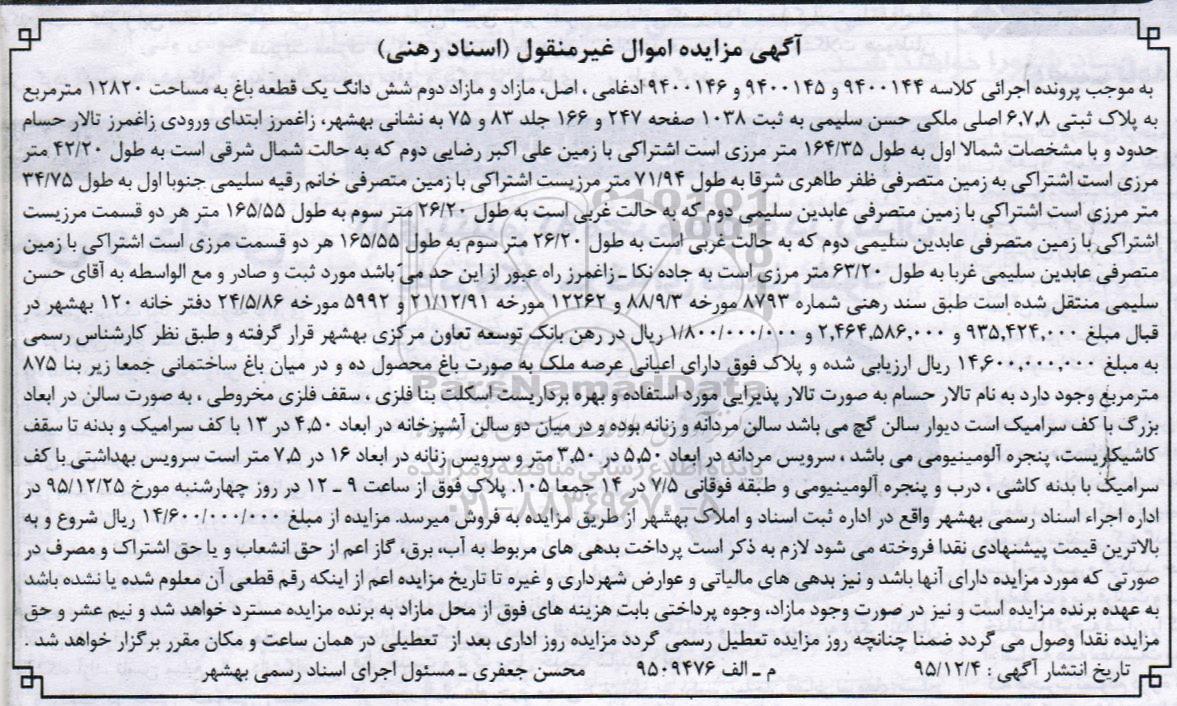 آگهی مزایده اموال غیرمنقول (اسناد رهنی)
به موجب پرونده اجرائی کلاسه ۹۴۰۰۱۴۴ و ۹۴۰۰۱۴۵ و ۹۴۰۰۱۴۶ ادغامی ، اصل، مازاد و مازاد دوم شش دانگ یک قطعه باغ به مساحت ۱۲۸۲۰ مترمربع
به پلاک ثبتی ۶،۷،۸ اصلی ملکی حسن سلیمی به ثبت ۱۰۳۸ صفحه ۲۴۷ و ۱۶۶ جلد ۸۳ و ۷۵ به نشانی بهشهر، زاغمرز ابتدای ورودی زاغمرز تالار حسام
حدود و با مشخصات شمالا اول به طول ۱۶۴/۳۵ متر مرزی است اشتراکی با زمین علی اکبر رضایی دوم که به حالت شمال شرقی است به طول ۴۲/۲۰ متر
مرزی است اشتراکی به زمین متصرفی ظفر طاهری شرقا به طول ۷۱/۹۴ متر مرزیست اشتراکی با زمین متصرفی خانم رقیه سلیمی جنوبا اول به طول ۳۴/۷۵
متر مرزی است اشتراکی با زمین متصرفی عابدین سلیمی دوم که به حالت غربی است به طول ۲۶/۲۰ متر سوم به طول ۱۶۵/۵۵ متر هر دو قسمت مرزیست
اشتراکی با زمین متصرفی عابدین سلیمی دوم که به حالت غربی است به طول ۲۶/۲۰ متر سوم به طول ۱۶۵/۵۵ هر دو قسمت مرزی است اشتراکی با زمین
متصرفی عابدین سلیمی غربا به طول ۶۳/۲۰ متر مرزی است به جاده نکا ـ زاغمرز راه عبور از این حد می باشد مورد ثبت و صادر و مع الواسطه به آقای حسن
سلیمی منتقل شده است طبق سند رهنی شماره ۸۷۹۳ مورخه ۸۸/۹/۳ و ۱۲۲۶۲ مورخه ۲۱/۱۲/۹۱ و ۵۹۹۲ مورخه ۲۴/۵/۸۶ دفتر خانه ۱۲۰ بهشهر در
قبال مبلغ ۹۳۵,۴۲۴,۰۰۰ و ۲,۴۶۴,۵۸۶,۰۰۰ و ۱/۸۰۰/۰۰۰/۰۰۰ ریال در رهن بانک توسعه تعاون مرکزی بهشهر قرار گرفته و طبق نظر کارشناس رسمی
به مبلغ ۱۴,۶۰۰,۰۰۰,۰۰۰ ریال ارزیابی شده و پلاک فوق دارای اعیانی عرصه ملک به صورت باغ محصول ده و در میان باغ ساختمانی جمعا زیر بنا ۸۷۵
مترمربع وجود دارد به نام تالار حسام به صورت تالار پذیرایی مورد استفاده و بهره برداریست اسکلت بنا فلزی ، سقف فلزی مخروطی ، به صورت سالن در ابعاد
بزرگ با کف سرامیک است دیوار سالن گچ می باشد سالن مردانه و زنانه بوده و در میان دو سالن آشپزخانه در ابعاد ۴,۵۰ در ۱۳ با کف سرامیک و بدنه تا سقف
کاشیکاریست، پنجره آلومینیومی می باشد ، سرویس مردانه در ابعاد ۵,۵۰ در ۳,۵۰ متر و سرویس زنانه در ابعاد ۱۶ در ۷,۵ متر است سرویس بهداشتی با کف
سرامیک با بدنه کاشی ، درب و پنجره آلومینیومی و طبقه فوقانی ۷/۵ در ۱۴ جمعا ۱۰۵. پلاک فوق از ساعت ۹ ـ ۱۲ در روز چهارشنبه مورخ ۹۵/۱۲/۲۵ در
اداره اجراء اسناد رسمی بهشهر واقع در اداره ثبت اسناد و املاک بهشهر از طریق مزایده به فروش میرسد. مزایده از مبلغ ۱۴/۶۰۰/۰۰۰/۰۰۰ ریال شروع و به
بالاترین قیمت پیشنهادی نقدا فروخته می شود لازم به ذکر است پرداخت بدهی های مربوط به آب، برق، گاز اعم از حق انشعاب و یا حق اشتراک و مصرف در
صورتی که مورد مزایده دارای آنها باشد و نیز بدهی های مالیاتی و عوارض شهرداری و غیره تا تاریخ مزایده اعم از اینکه رقم قطعی آن معلوم شده یا نشده باشد
به عهده برنده مزایده است و نیز در صورت وجود مازاد، وجوه پرداختی بابت هزینه های فوق از محل مازاد به برنده مزایده مسترد خواهد شد و نیم عشر و حق
مزایده نقدا وصول می گردد ضمنا چنانچه روز مزایده تعطیل رسمی گردد مزایده روز اداری بعد از تعطیلی در همان ساعت و مکان مقرر برگزار خواهد شد .
تاریخ انتشار آگهی : ۹۵/۱۲/۴ م ـ الف ۹۵۰۹۴۷۶ محسن جعفری ـ مسئول اجرای اسناد رسمی بهشهر
ParsNamadData
پایگاه اطلاع رسانی مناقصه و مزایده
۰۲۱-۸۸۳۴۹۶۷۰-۵